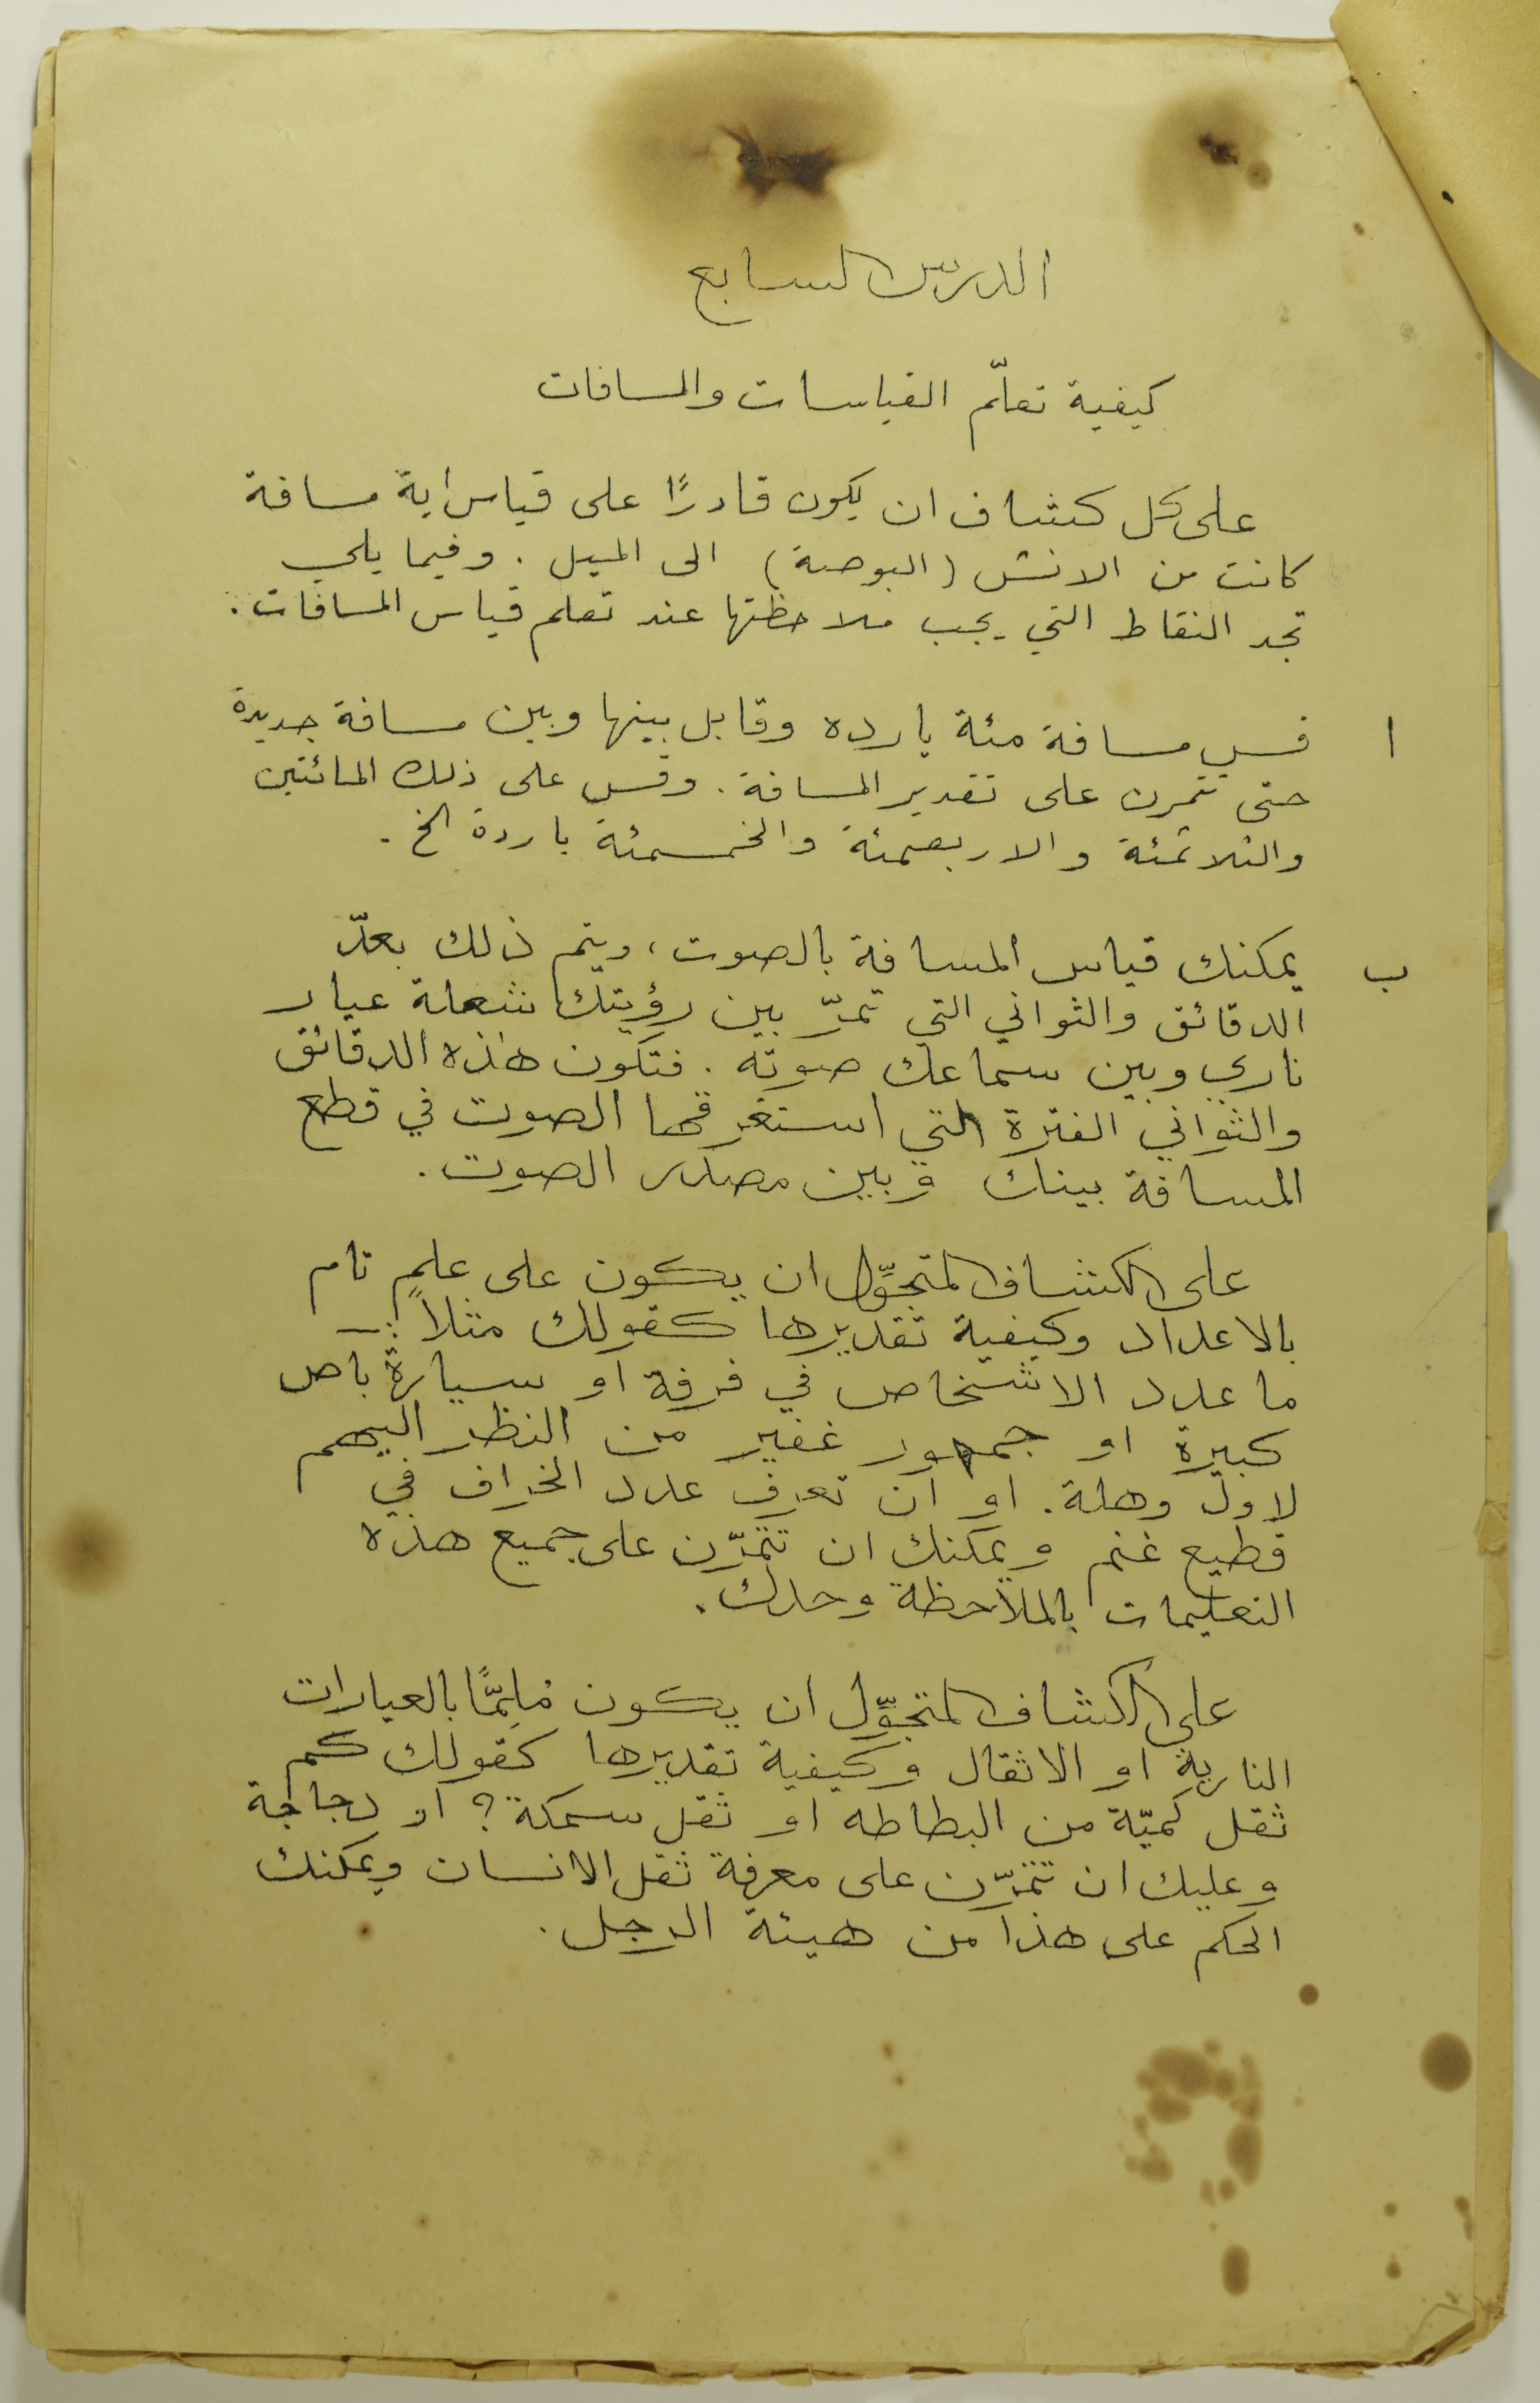 الدرس السابع
كيفية تعلّم القياسات والمسافات
على كل كشاف ان يكون قادرًا على قياس اية مسافة
كانت من الانش (البوصة) الى الميل . وفيما يلي
تجد النقاط التي يجب ملاحظتها عند تعلم قياس المسافات .
ا قس مسافة مئة يارده وقابل بينها وبين مسافة جديدة
حتى تتمرن على تقدير المسافة . وقس على ذلك المائتين
والثلاثمئة والاربعمئة والخمسمئة ياردة الخ .
ب يمكنك قياس المسافة بالصوت ، ويتم ذلك بعدّ
الدقائق والثواني التي تمرّ بين رؤيتك شعلة عيار
ناري وبين سماعك صوته . فتكون هذه الدقائق
والثواني الفترة التي استغرقها الصوت في قطع
المسافة بينك وبين مصدر الصوت .
على الكشاف المتجوِّل ان يكون على علمٍ تام
بالاعداد وكيفية تقديرها كقولك مثلاً :ـ
ما عدد الاشخاص في فرقة او سيارة باص
كبيرة او جمهور غفير من النظر اليهم
لاول وهلة . او ان تعرف عدد الخراف في
قطيع غنم ويمكنك ان تتمرّن على جميع هذه
التعليمات بالملاحظة وحدك .
على الكشاف المتجوِّل ان يكون مُلِمًّا بالعيارات
النارية او الاثقال وكيفية تقديرها كقولك كم
ثقل كميّة من البطاطه او ثقل سمكة ؟ او دجاجة
وعليك ان تتمرّن على معرفة ثقل الانسان ويمكنك
الحكم على هذا من هيئة الرجل .